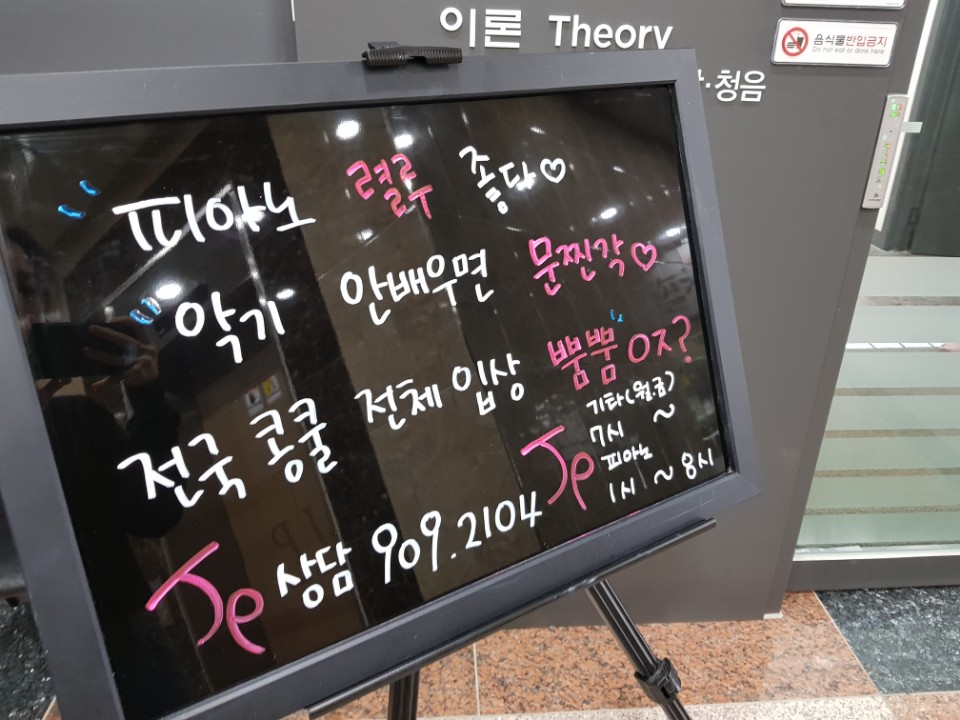 이론 Theory
음식물반입금지
Do not eat or drink here
·청음
피아노 렬루 좋다♡
악기 안배우면 문찐각♡
전국 콩쿨 전체 입상 뿜뿜 OZ?
기타(월.금)
7시 ~
피아노
1시 ~ 8시
Jp
Jp 상담 909.2104